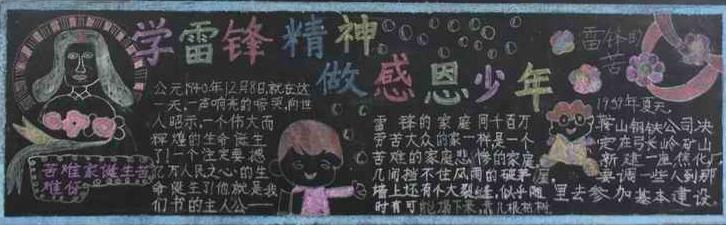 学雷锋精神
做感恩少年
雷锋的
苦
苦难家诞生苦
难份
公元1940年12月8日,就在这
一天,一声响亮的啼哭,向世
人昭示,一个伟大而
辉煌的生命诞生
了!一个注定要撼
亿万人民之心的生
命诞生了!他就是我
们书的主人公——
雷锋的家庭同千百万
劳苦大众的家一样是一个
苦难的家庭悲惨的家庭
几间挡不住风雨的破茅屋,
墙上还有个大裂缝,似乎随
时有可能塌下来,靠几根枯树
1959年夏天,
鞍山钢铁公司决
定在弓长岭矿山
新建一座焦化厂
要调一些人到那
里去参加基本建设